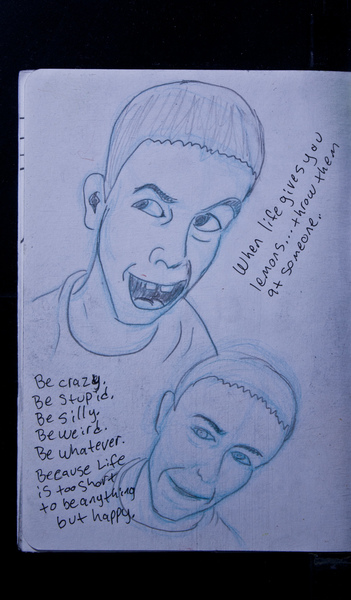 When life gives you
lemons... throw them
at someone.
Be crazy.
Be Stupid.
Be Silly.
Be weird.
Be whatever.
Because Life
is too Short
to be anything
but happy.